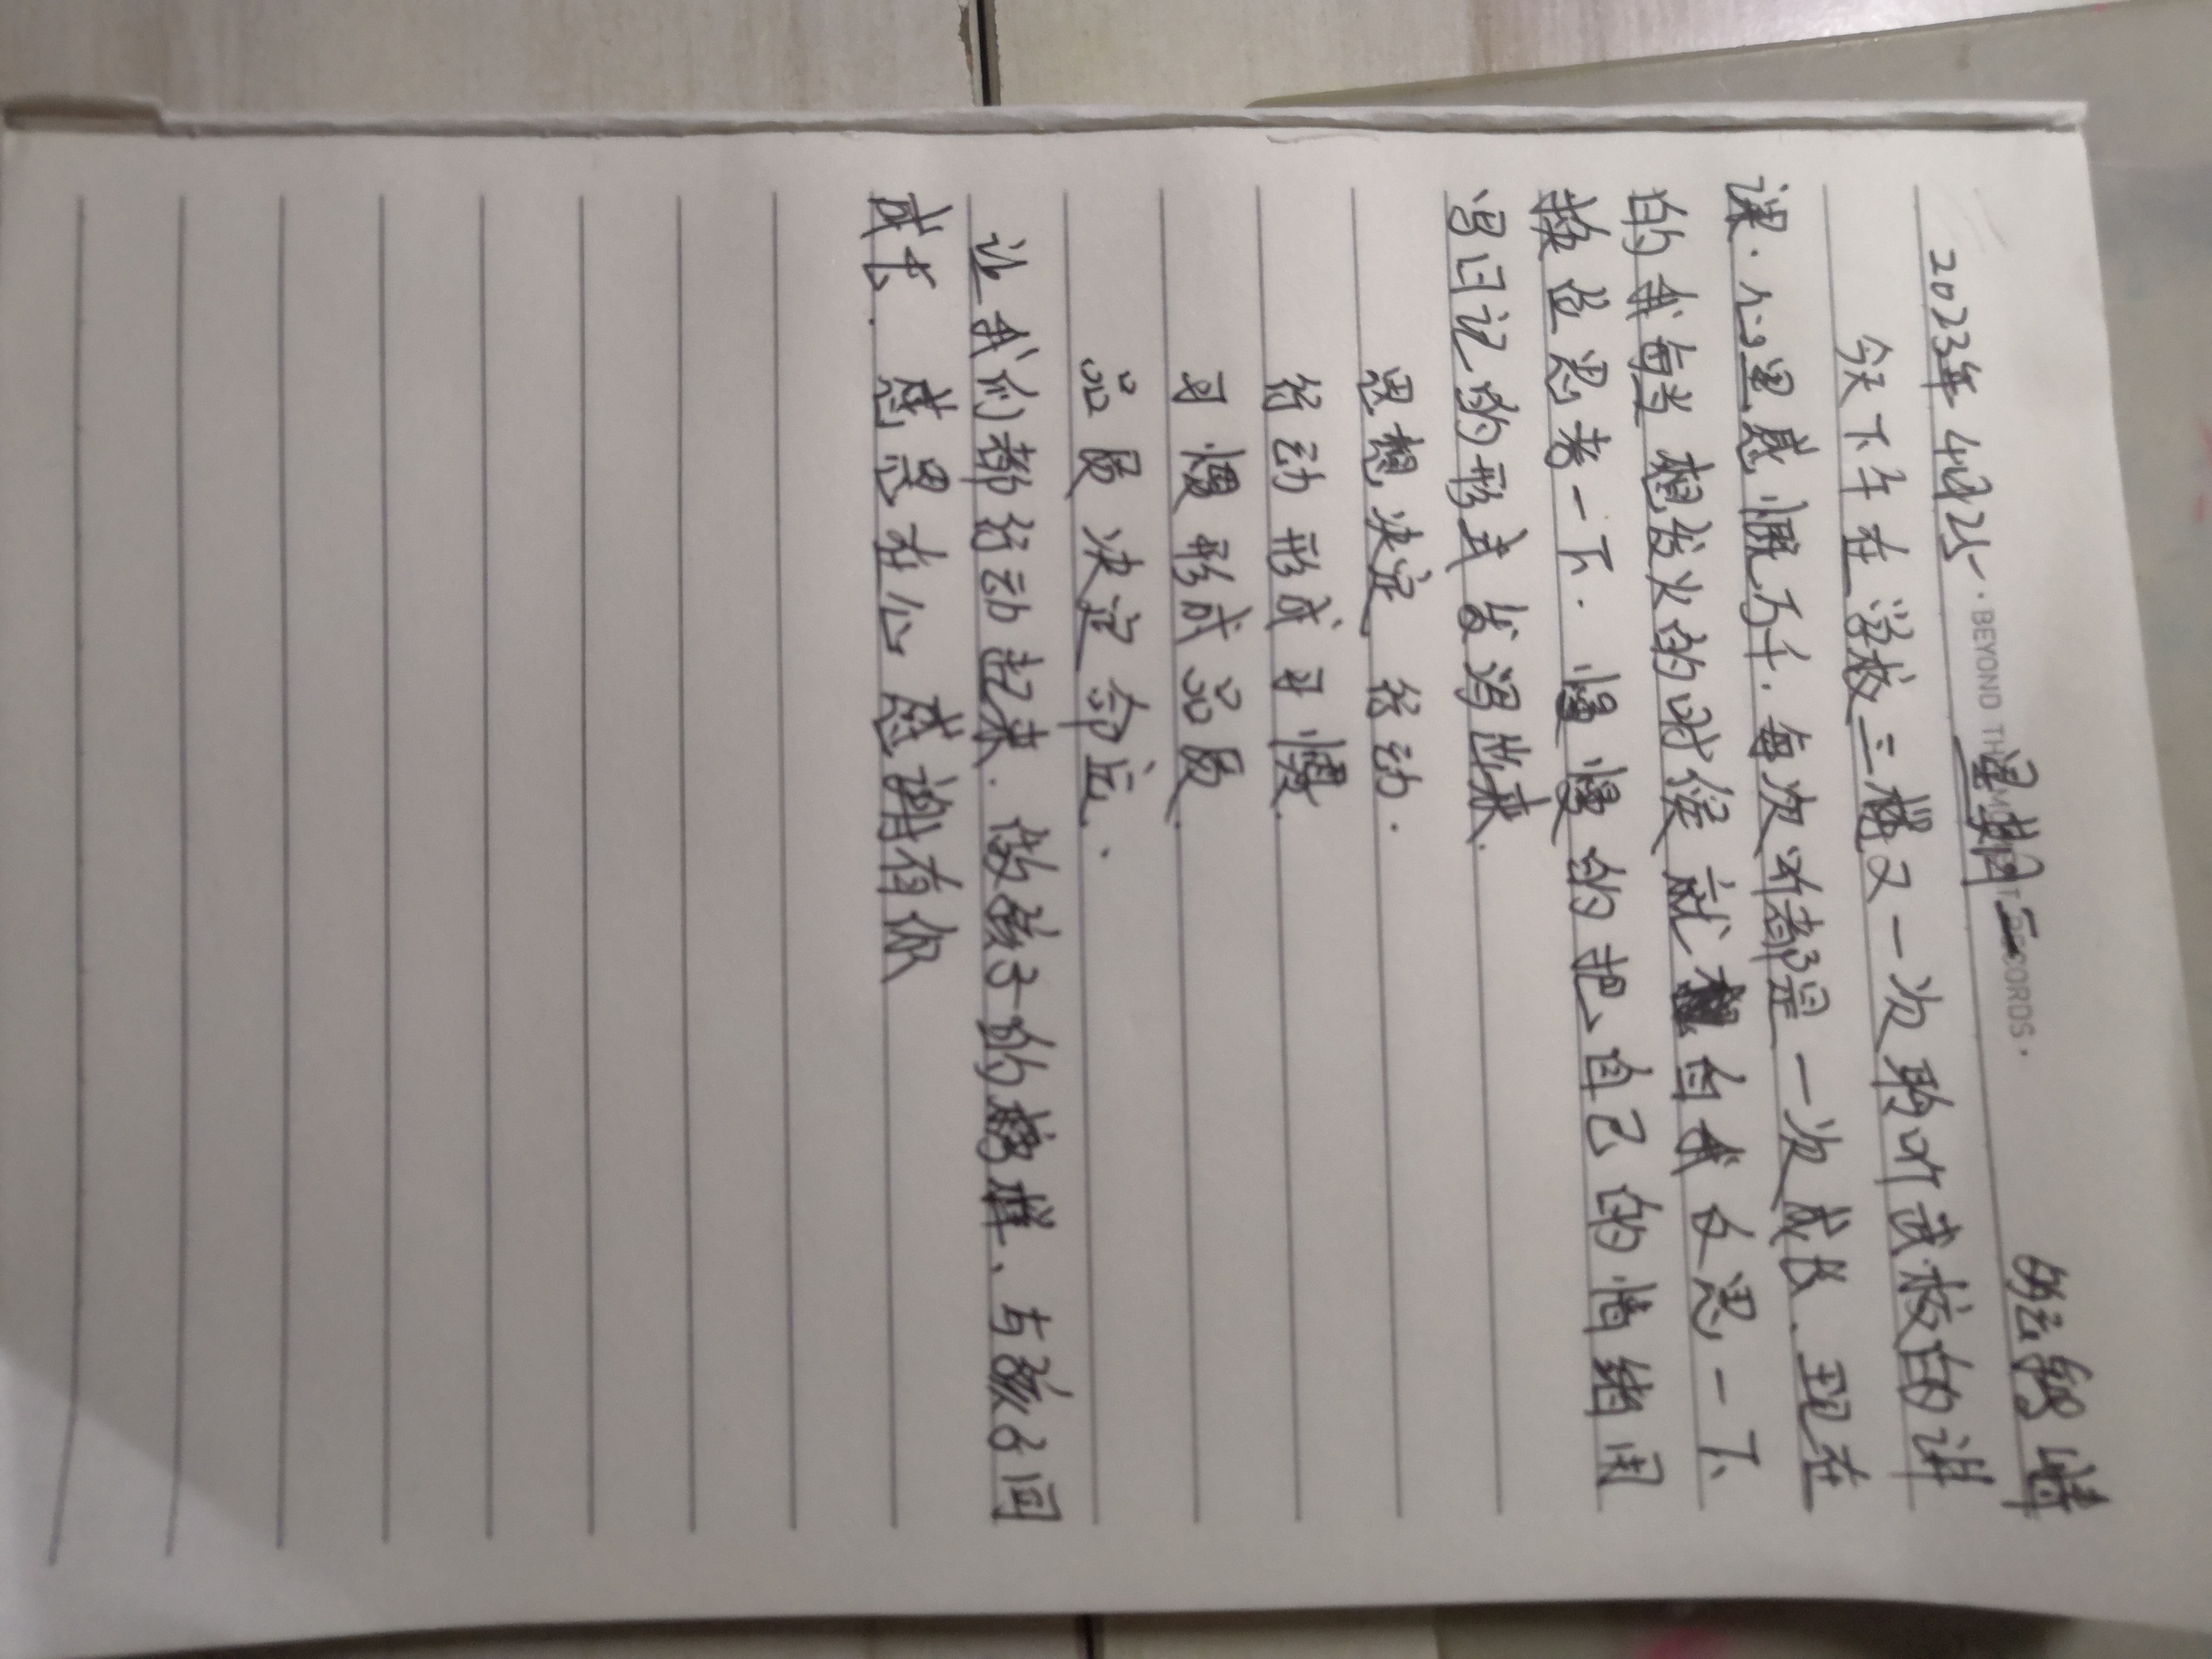 ·BEYOND THE MOMENT RECORDS·
2023年4月25 星期二 晴
今天下午在学校三楼又一次聆听武校白的讲
课.心里感慨万千.每次听都是一次成长.现在
的我每当想发火的时候就 自我反思一下、
换位思考一下.慢慢的把自己的情绪用
写日记的形式发泻出来.
思想决定行动.
行动形成习慢.
习慢形成品质.
品质决定命运.
让我们都行动起来.做孩子的榜样、与孩子同
成长. 感恩在心 感谢有你